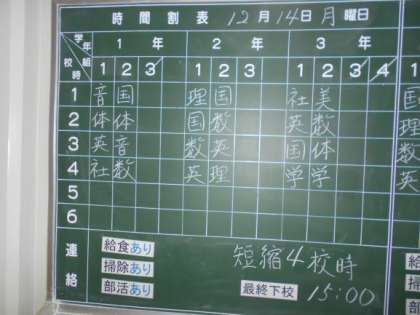 時間割表 12月14日月曜日
学年 1年 2年 3年
校時 組 1 2 3 1 2 3 1 2 3 4
1 音 国 理 国 社 美 国
2 体 体 国 数 英 数 理
3 英 音 数 英 国 体 数
4 社 数 英 理 学 学 英
5
6
連絡
給食あり
掃除あり 短縮4校時
部活あり 最終下校 15:00